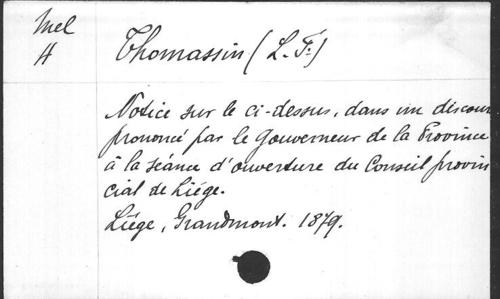 Mel
H
Thomassin (L. F.)
Notice sur le ci-dessus, dans un discours
prononcé par le Gouverneur de la Province
à la séance d'ouverture du Conseil provin
cial de Liége.
Liége, Grandmont. 1879.